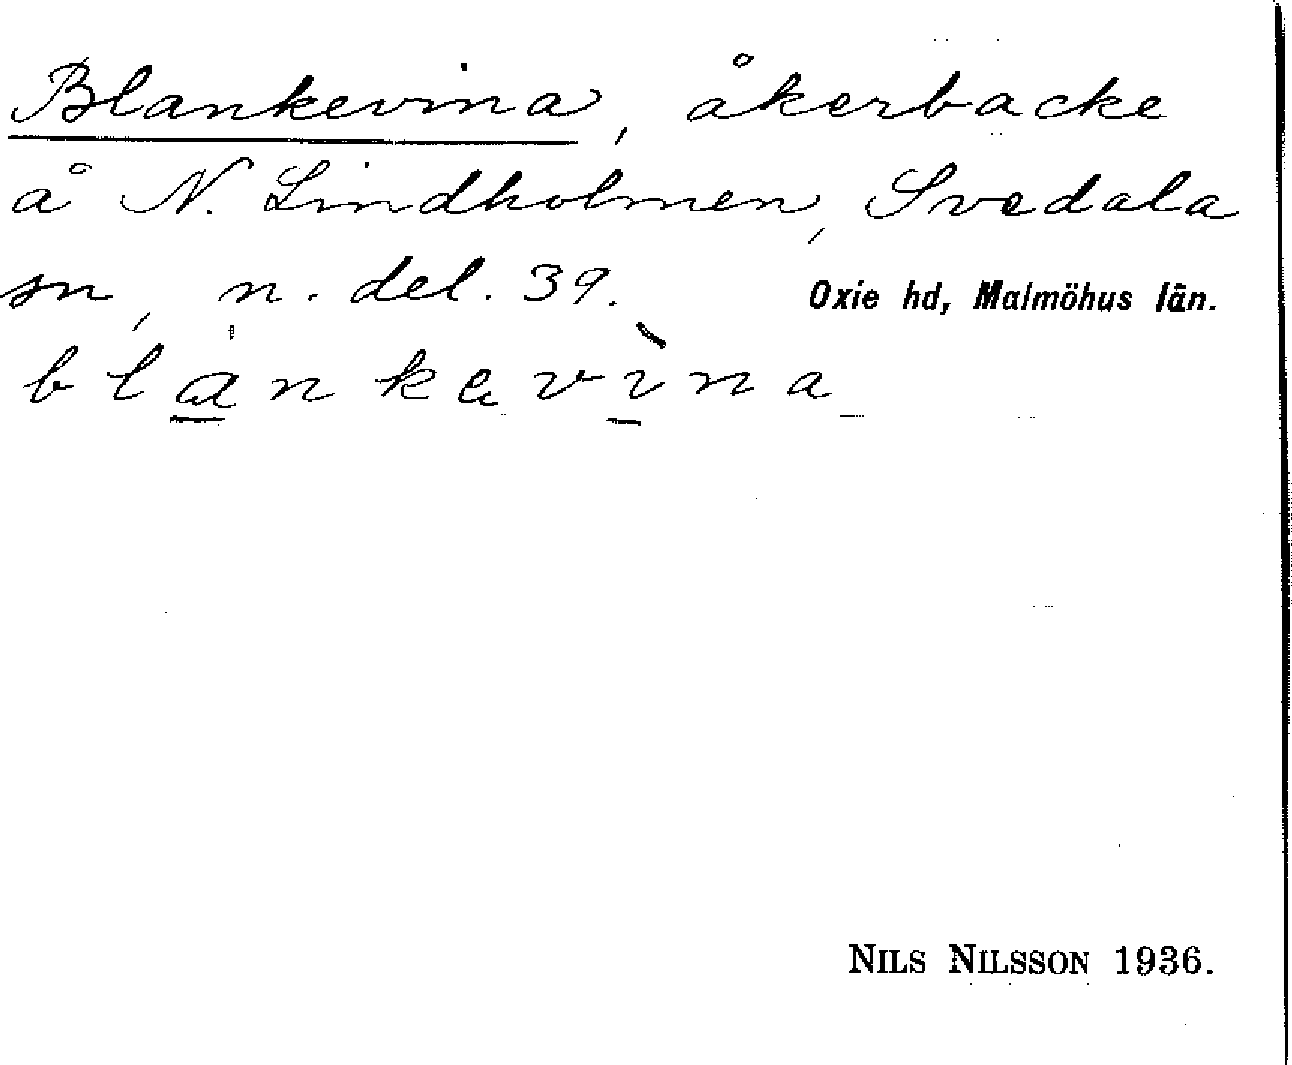 Blankevina, åkerbacke
å N. Lindholmen, Svedala
sn, n. del. 39. Oxie hd, Malmöhus län.
blankevìna
NILS NILSSON 1936.